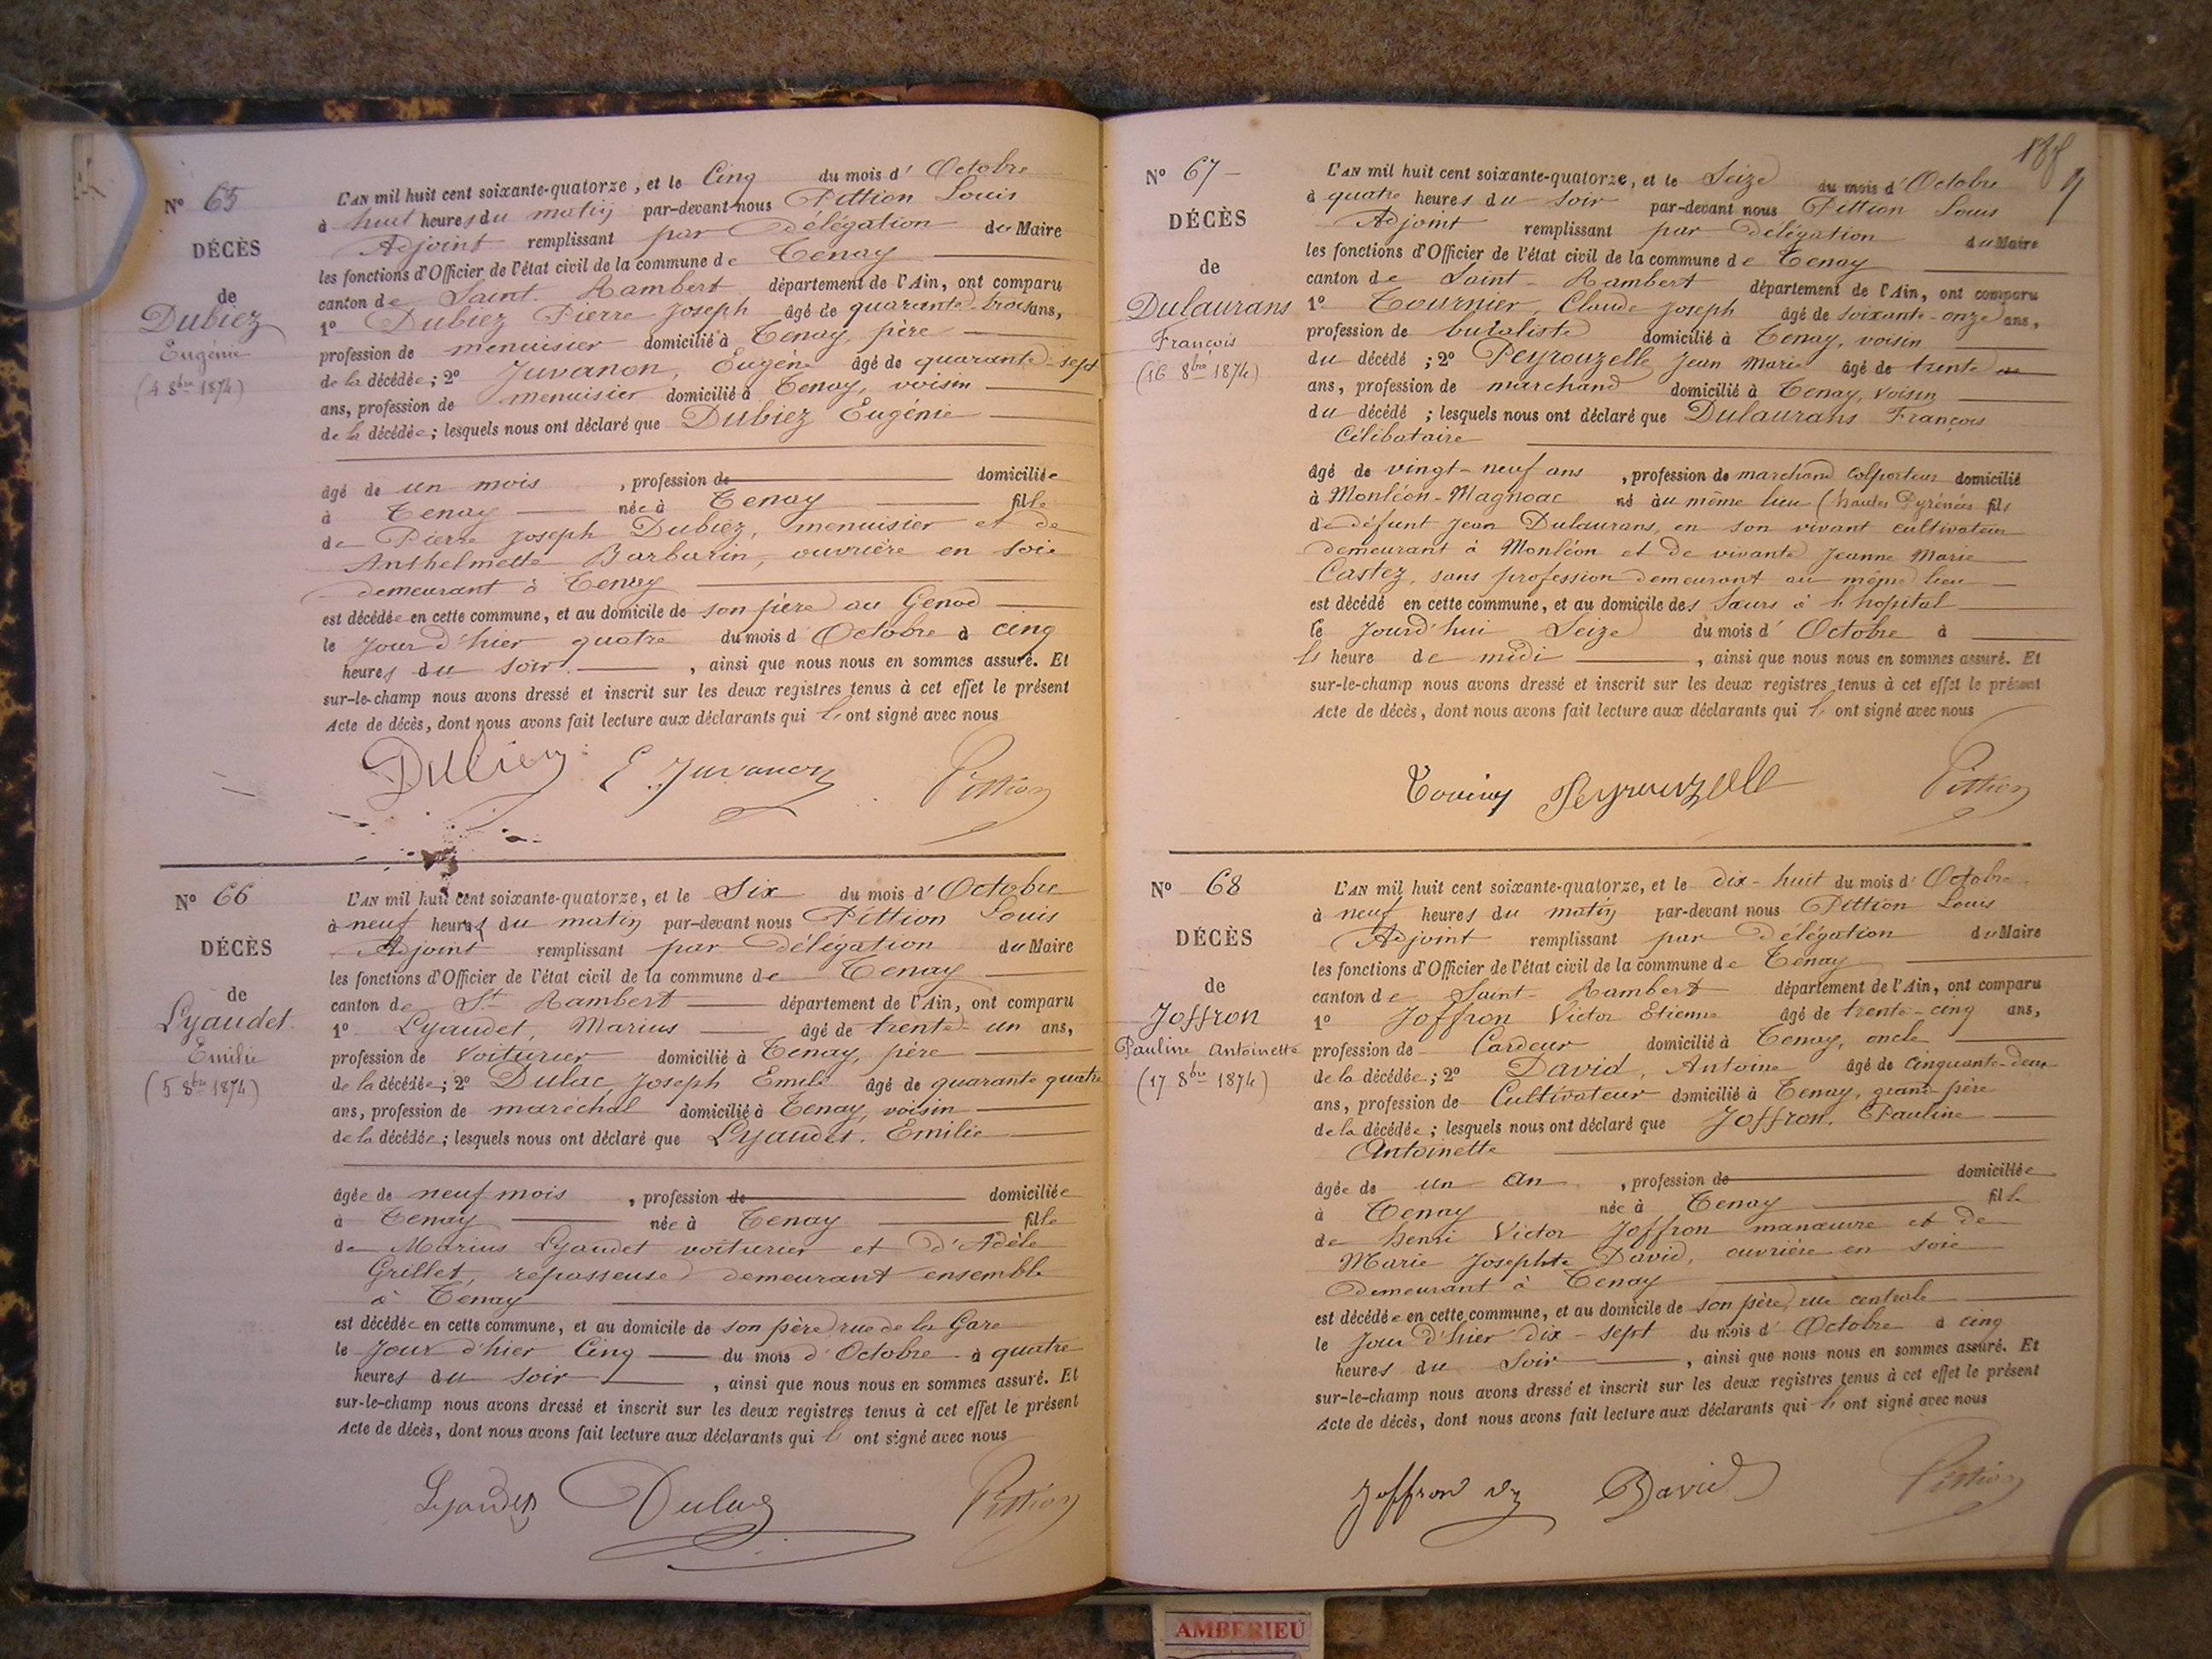 N° 65
DÉCÈS
de
Dubiez
Eugénie
(4 8bre 1874)
L'AN mil huit cent soixante-quatorze, et le Cinq du mois d'Octobre
à huit heures du matin par-devant nous Pittion Louis
Adjoint remplissant par Délégation du Maire
les fonctions d'Officier de l'état civil de la commune de Tenay
canton de Saint-Rambert département de l'Ain, ont comparu
1° Dubiez Pierre Joseph âgé de quarante-trois ans,
profession de menuisier domicilié à Tenay, père
de la décédée; 2° Juvanon, Eugène âgé de quarante-sept
ans, profession de menuisier domicilié à Tenay, voisin
de la décédée; lesquels nous ont déclaré que Dubiez Eugénie
âgé de un mois, profession de domiciliée
à Tenay née à Tenay fille
de Pierre Joseph Dubiez, menuisier et de
Anthelmette Barbarin, ouvrière en soie
demeurant à Tenay
est décédée en cette commune, et au domicile de son père au Genod
le jour d'hier quatre du mois d'Octobre à cinq
heures du soir, ainsi que nous nous en sommes assuré. Et
sur-le-champ nous avons dressé et inscrit sur les deux registres tenus à cet effet le présent
Acte de décès, dont nous avons fait lecture aux déclarants qui l' ont signé avec nous
Dubiez E. Juvanon Pittion
N° 66
DÉCÈS
de
Lyaudet
Emilie
(5 8bre 1874)
L'AN mil huit cent soixante-quatorze, et le Six du mois d'Octobre
à neuf heures du matin par-devant nous Pittion Louis
Adjoint remplissant par Délégation du Maire
les fonctions d'Officier de l'état civil de la commune de Tenay
canton de St Rambert département de l'Ain, ont comparu
1° Lyaudet, Marius âgé de trente-un ans,
profession de voiturier domicilié à Tenay, père
de la décédée; 2° Dulac, Joseph Emile âgé de quarante quatre
ans, profession de maréchal domicilié à Tenay, voisin
de la décédée; lesquels nous ont déclaré que Lyaudet. Emilie
âgée de neuf mois, profession de domiciliée
à Tenay née à Tenay fille
de Marius Lyaudet voiturier et d'Adèle
Grillet, repasseuse demeurant ensemble
à Tenay
est décédée en cette commune, et au domicile de son père, rue de la Gare
le jour d'hier Cinq du mois d'Octobre à quatre
heures du soir, ainsi que nous nous en sommes assuré. Et
sur-le-champ nous avons dressé et inscrit sur les deux registres tenus à cet effet le présent
Acte de décès, dont nous avons fait lecture aux déclarants qui l' ont signé avec nous
Lyaudet Dulac Pittion
N° 67
DÉCÈS
de
Dulaurans
François
(16 8bre 1874)
L'AN mil huit cent soixante-quatorze, et le Seize du mois d'Octobre
à quatre heures du soir par-devant nous Pittion Louis
Adjoint remplissant par Delégation du Maire
les fonctions d'Officier de l'état civil de la commune de Tenay
canton de Saint-Rambert département de l'Ain, ont comparu
1° Tournier, Claude Joseph âgé de soixante-onze ans,
profession de buraliste domicilié à Tenay, voisin
du décédé; 2° Peyrouzelle Jean Marie âgé de trente
ans, profession de marchand domicilié à Tenay, voisin
du décédé; lesquels nous ont déclaré que Dulaurans François
Célibataire
âgé de vingt-neuf ans, profession de marchand colporteur domicilié
à Monléon-Magnoac né au même lieu (hautes Pyrénées fils
de défunt Jean Dulaurans, en son vivant cultivateur
demeurant à Monléon et de vivante Jeanne Marie
Castez, sans profession demeurant au même lieu
est décédé en cette commune, et au domicile des Sœurs à l'hopital
le jourd'hui Seize du mois d'Octobre à
l' heure de midi, ainsi que nous nous en sommes assuré. Et
sur-le-champ nous avons dressé et inscrit sur les deux registres tenus à cet effet le présent
Acte de décès, dont nous avons fait lecture aux déclarants qui l' ont signé avec nous
Peyrouzelle Pittion
N° 68
DÉCÈS
de
Joffron
Pauline Antoinette
(17 8bre 1874)
L'AN mil huit cent soixante-quatorze, et le dix-huit du mois d'Octobre
à neuf heures du matin par-devant nous Pittion Louis
Adjoint remplissant par Délégation du Maire
les fonctions d'Officier de l'état civil de la commune de Tenay
canton de Saint-Rambert département de l'Ain, ont comparu
1° Joffron Victor Etienne âgé de trente-cinq ans,
profession de Cardeur domicilié à Tenay, oncle
de la décédée; 2° David, Antoine âgé de cinquante-deux
ans, profession de Cultivateur domicilié à Tenay, grand-père
de la décédée; lesquels nous ont déclaré que Joffron. Pauline
Antoinette
âgée de un an, profession de domiciliée
à Tenay née à Tenay fille
de henri Victor Joffron manœuvre et de
Marie Josephte David, ouvrière en soie
demeurant à Tenay
est décédée en cette commune, et au domicile de son père, rue centrale
le jour d'hier dix-sept du mois d'Octobre à cinq
heures du Soir, ainsi que nous nous en sommes assuré. Et
sur-le-champ nous avons dressé et inscrit sur les deux registres tenus à cet effet le présent
Acte de décès, dont nous avons fait lecture aux déclarants qui l' ont signé avec nous
Joffron David Pittion
AMBERIEU